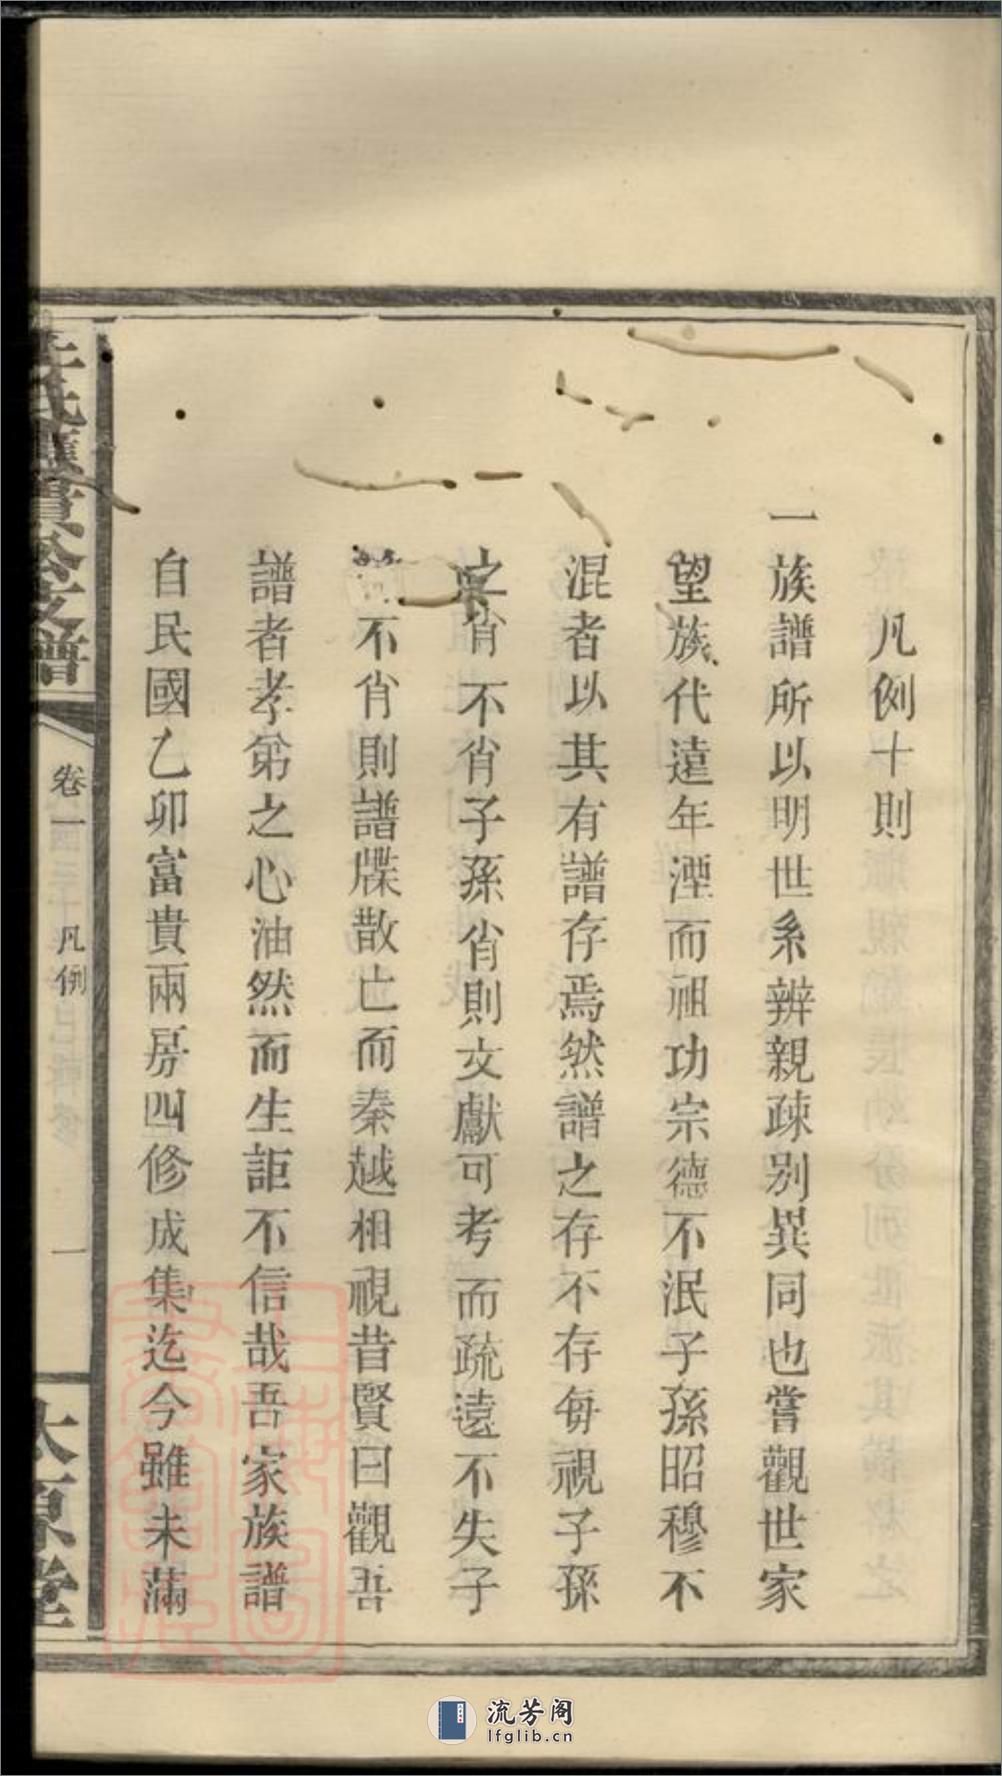 凡例十則
一族譜所以明世系辨親疎別異同也嘗觀世家
望族代遠年湮而祖功宗德不泯子孫昭穆不
混者以其有譜存焉然譜之存不存每視子孫
之肖不肖子孫肖則文獻可考而疏遠不失子
不肖則譜牒散亡而秦越相視昔賢曰觀吾
譜者孝弟之心油然而生詎不信哉吾家族譜
自民國乙卯富貴兩房四修成集迄今雖未滿
氏 貴公支譜
卷一 凡例 一
太原堂
上海圖書館藏
流芳阁
lfglib.cn